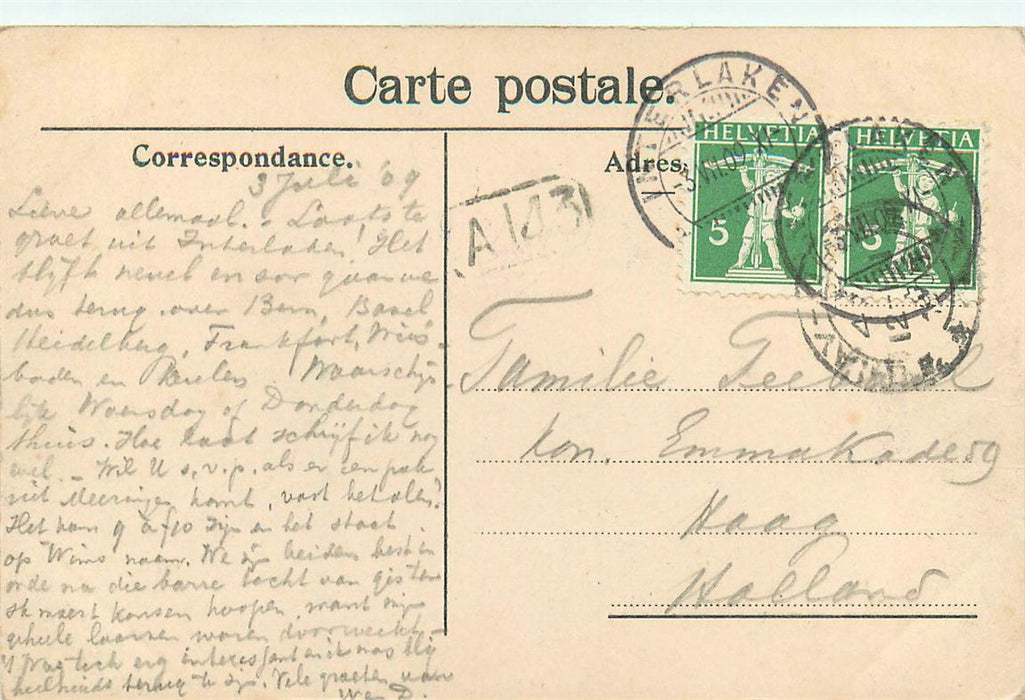 Carte postale.
INTERLAKEN
HELVETIA
HELVETIA
5
5
-3.VII.09.XI-
Correspondance.
Adres
A 143
3 Juli '09
Lieve allemaal. Laatste
groet uit Interlaken! Het
blijft nevel en gaan we
dus terug over Bern, Basel
Heidelberg, Frankfort, Wies-
baden en Keulen Waarschijn-
lijk Woensdag of Donderdag
thuis. Hoe laat schrijf ik nog
wel. - Wil U s.v.p. als er een pak
uit Meiringen komt, vast betalen?
Het kan 9 à f10 zijn en het staat
op Wims naam. We zijn beiden best in
orde na die barre tocht van gisteren
Ik moest kousen koopen, want mijn
geheele laarzen waren doorweekt -
't Was toch erg interessant en ik was blij
terug te zijn. Vele groeten van
W en D.
Familie
Kon. Emmakade 59
Haag
Holland